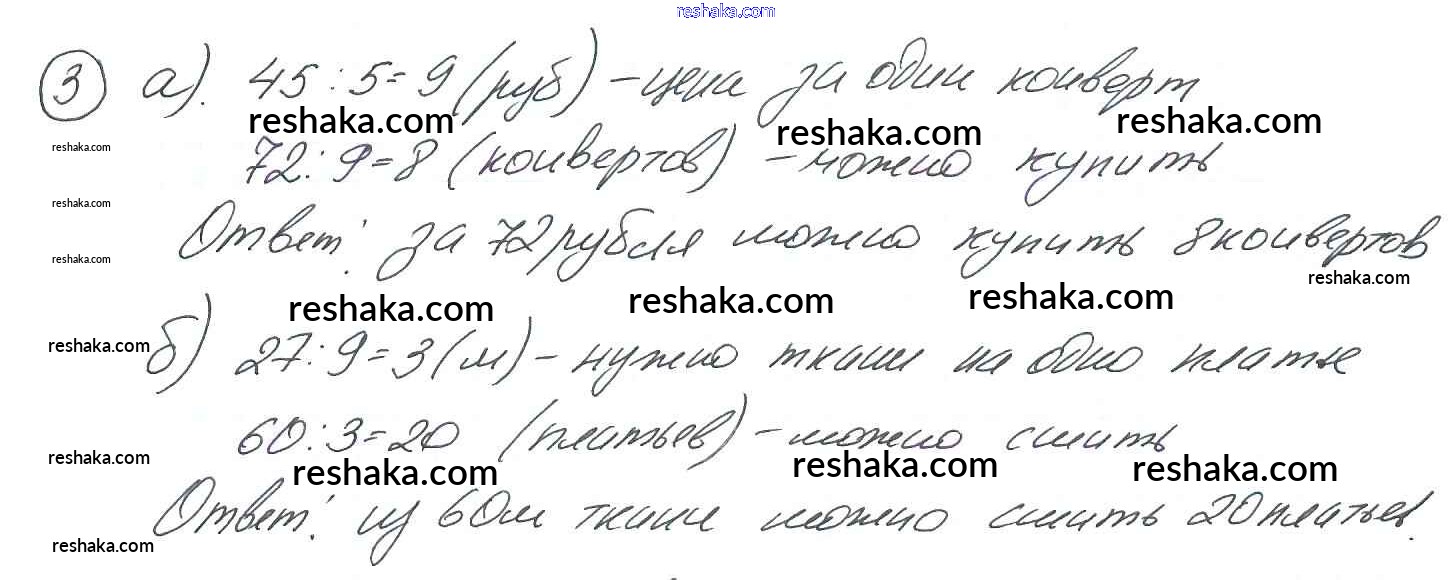 reshaka.com
3 а). 45 : 5 = 9 (руб) – цена за один конверт
reshaka.com reshaka.com reshaka.com
reshaka.com
72 : 9 = 8 (конвертов) – можно купить
reshaka.com
Ответ: за 72 рубля можно купить 8 конвертов
reshaka.com
reshaka.com
reshaka.com reshaka.com reshaka.com
reshaka.com
б) 27 : 9 = 3 (м) – нужно ткани на одно платье
60 : 3 = 20 (платьев) – можно сшить
reshaka.com
reshaka.com reshaka.com reshaka.com
Ответ: из 60м ткани можно сшить 20 платьев.
reshaka.com